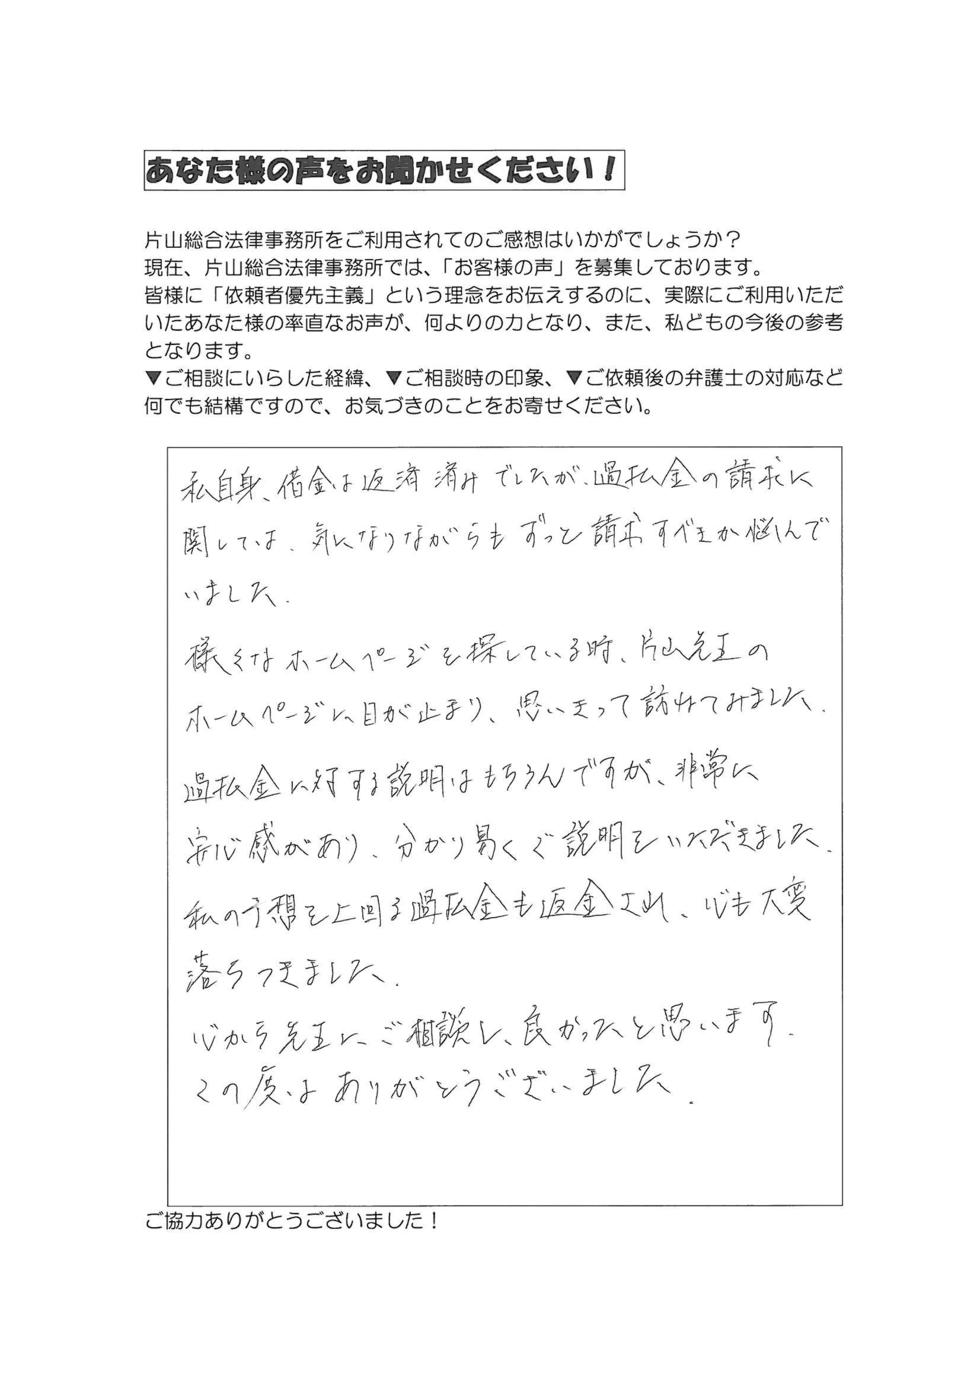 あなた様の声をお聞かせください！
片山総合法律事務所をご利用されてのご感想はいかがでしょうか？
現在、片山総合法律事務所では、「お客様の声」を募集しております。
皆様に「依頼者優先主義」という理念をお伝えするのに、実際にご利用いただ
いたあなた様の率直なお声が、何よりの力となり、また、私どもの今後の参考
となります。
▼ご相談にいらした経緯、▼ご相談時の印象、▼ご依頼後の弁護士の対応など
何でも結構ですので、お気づきのことをお寄せください。
私自身、借金は返済済みでしたが、過払金の請求に
関しては、気になりながらもずっと請求すべきか悩んで
いました。
様々なホームページを探している時、片山先生の
ホームページに目が止まり、思いきって訪ねてみました。
過払金に対する説明はもちろんですが、非常に
安心感があり、分かり易くご説明をいただきました。
私の予想を上回る過払金も返金され、心も大変
落ちつきました。
心から先生にご相談し、良かったと思います。
この度はありがとうございました。
ご協力ありがとうございました！